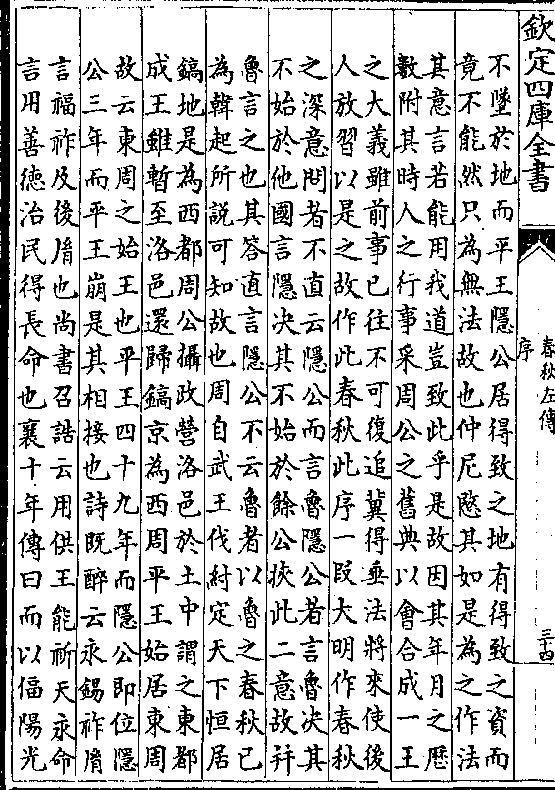 欽定四庫全書
春秋左傳
序
三十四
不墜於地而平王隱公居得致之地有得致之資而
竟不能然只為無法故也仲尼愍其如是為之作法
其意言若能用我道豈致此乎是故因其年月之歷
數附其時人之行事采周公之舊典以會合成一王
之大義雖前事已往不可復追冀得垂法將來使後
人放習以是之故作此春秋此序一段大明作春秋
之深意問者不直云隱公而言魯隱公者言魯决其
不始於他國言隱决其不始於餘公挾此二意故并
魯言之也其答直言隱公不云魯者以魯之春秋已
為韓起所說可知故也周自武王伐紂定天下恒居
鎬地是為西都周公攝政營洛邑於土中謂之東都
成王雖暫至洛邑還歸鎬京為西周平王始居東周
故云東周之始王也平王四十九年而隱公即位隱
公三年而平王崩是其相接也詩既醉云永錫祚𦙍
言福祚及後𦙍也尚書召誥云用供王能祈天永命
言用善德治民得長命也襄十年傳曰而以偪陽光